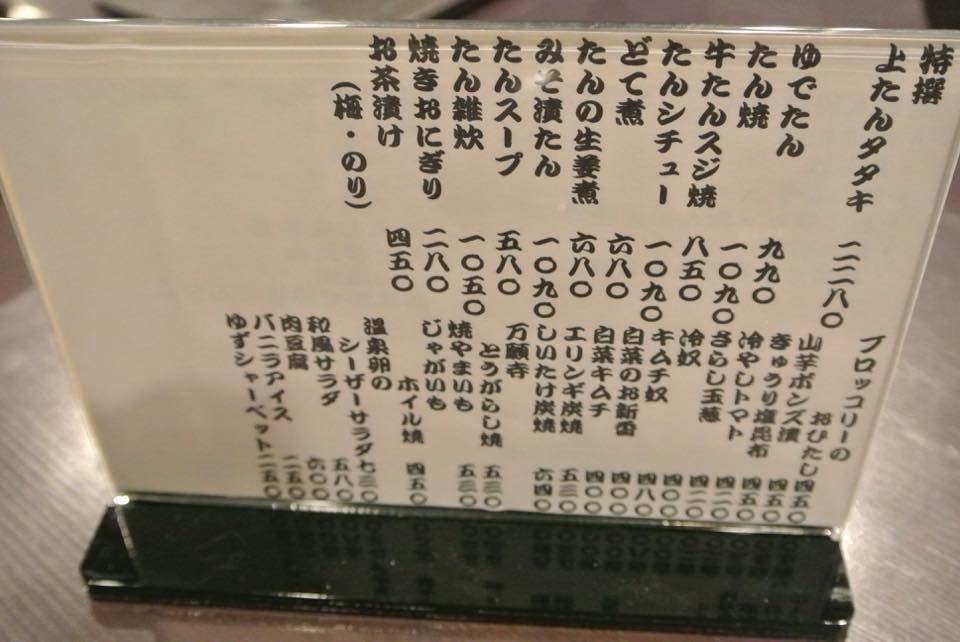 特撰
上たんタタキ 一二八〇
ゆでたん 九九〇
たん焼 一〇九〇
牛たんスジ焼 八五〇
たんシチュー 一〇九〇
どて煮 六八〇
たんの生姜煮 六八〇
みそ漬たん 一〇九〇
たんスープ 五八〇
たん雑炊 一〇五〇
焼きおにぎり 二八〇
お茶漬け 四五〇
（梅・のり）
ブロッコリーの
おひたし 四五〇
山芋ポンズ漬 四五〇
きゅうり塩昆布 四五〇
冷やしトマト 四二〇
さらし玉葱 四二〇
冷奴 四〇〇
キムチ奴 四八〇
白菜のお新香 四〇〇
白菜キムチ 四〇〇
エリンギ炭焼 五三〇
しいたけ炭焼 六四〇
万願寺
とうがらし焼 五三〇
焼やまいも 五三〇
じゃがいも
ホイル焼 四五〇
温泉卵の
シーザーサラダ 七三〇
和風サラダ 五八〇
肉豆腐 六〇〇
バニラアイス 二五〇
ゆずシャーベット 二五〇